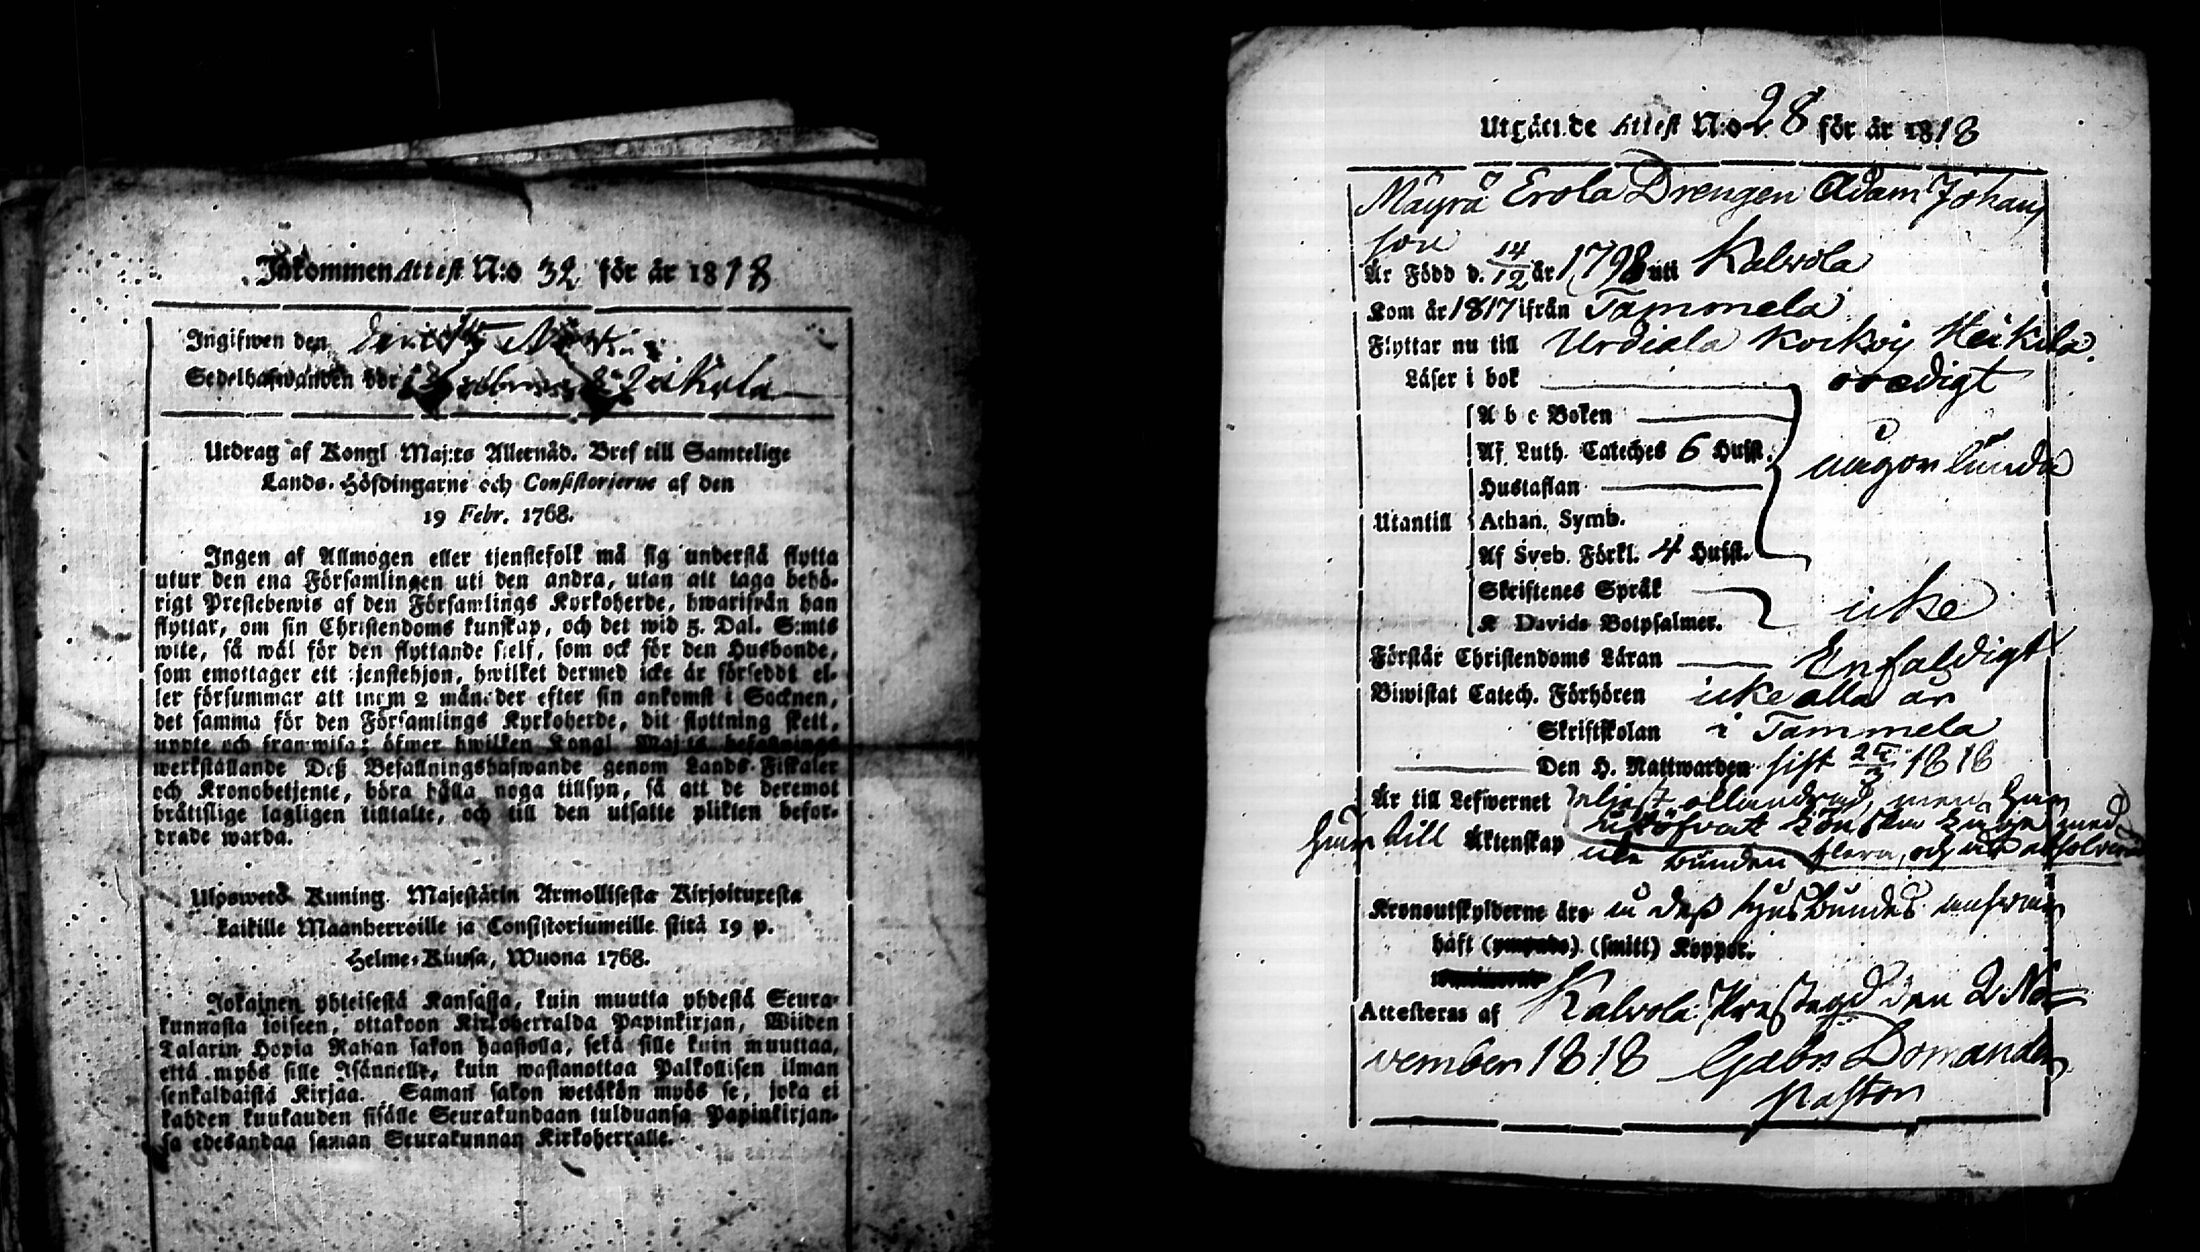 Inkommen Attest N:o 32 för år 1818
Ingifwen den
Sedelhafwanden bör
Utdrag af Kongl Maj:ts Allernåd. Bref till Samtelige
Lands-Höfdingarne och Consistorierne af den
19 Febr. 1768.
Ingen af Allmogen eller tjenstefolk må sig understå flytta
utur den ena Församlingen uti den andra, utan att taga behö-
rigt Prestebewis af den Församlings Kyrkoherde, hwarifrån han
flyttar, om sin Christendoms kunskap, och det wid 5. Dal. S:mts
wite, så wäl för den flyttande sielf, som ock för den Husbonde,
som emottager ett tjenstehjon, hwilket dermed icke är försedt el-
ler försummar att inom 2 månader efter sin ankomst i Socknen,
det samma för den Församlings Kyrkoherde, dit flyttning skett,
uppte och framwisa; öfwer hwilken Kongl Maj:ts befallnings
werkställande Deß Befallningshafwande genom Lands-Fiskaler
och Kronobetjente, böra hålla noga tillsyn, så att de deremot
bråttslige lagligen tilltalte, och till den utsatte plikten befor-
drade warda.
Ulpswetd Kuning. Majestätin Armollisesta Kirjoituxesta
kaikille Maanherroille ja Consistoriumeille siitä 19 p.
Helme-Kuusa, Wuona 1768.
Jokainen yhteisestä Kansasta, kuin muutta yhdestä Seura-
kunnasta toiseen, ottakoon Kirkoherralda Papinkirjan, Wiiden
Talarin Hopia Rahan sakon haastolla, sekä sille kuin muuttaa,
että myös sille Isännelle, kuin wastanottaa Palkollisen ilman
senkaldaistä Kirjaa. Saman sakon wetäkön myös se, joka ei
kahden kuukauden sisälle Seurakundaan tulduansa Papinkirjan-
sa edesandaa saman Seurakunnan Kirkoherralle.
Utgående Attest N:o 28 för år 1818
Mäyrä Erola Drengen Adam Johans
son
Är Född d. 14/12 år 1798 uti Kalvola
Kom år 1817 ifrån Tammela
Flyttar nu till Urdiala Korkoij Heikola.
Läser i bok oredigt
A b c Boken
Af Luth. Cateches 6 Hufst.
någorlunda
Hustaflan
Utantill Athan. Symb.
Af Sveb. Förkl. 4 Hufst.
Skriftenes Språk
icke
K Davids Botpsalmer.
Förstår Christendoms Läran Enfaldigt
Biwistat Catech. Förhören icke alla år
Skriftskolan i Tammela
Den H. Nattwarden sist 25/3 1818
Är till Lefwernet men han
till Äktenskap icke bunden flera, och är absolverad
Kronoutskylderne äro i deß husbondes answar
haft (smitt) Koppor.
Attesteras af Kalvola Prestegd den 2 No-
vember 1818 Gabr Domander
Pastor